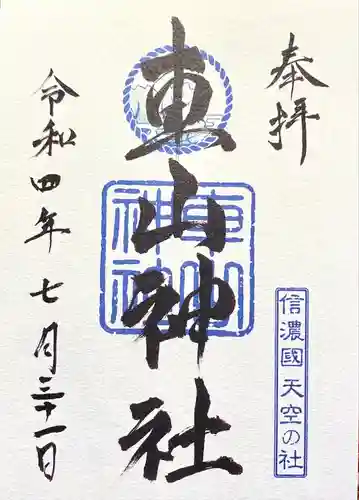 奉拝
信濃國 天空の社
車山神社
車山神社
令和四年七月三十一日